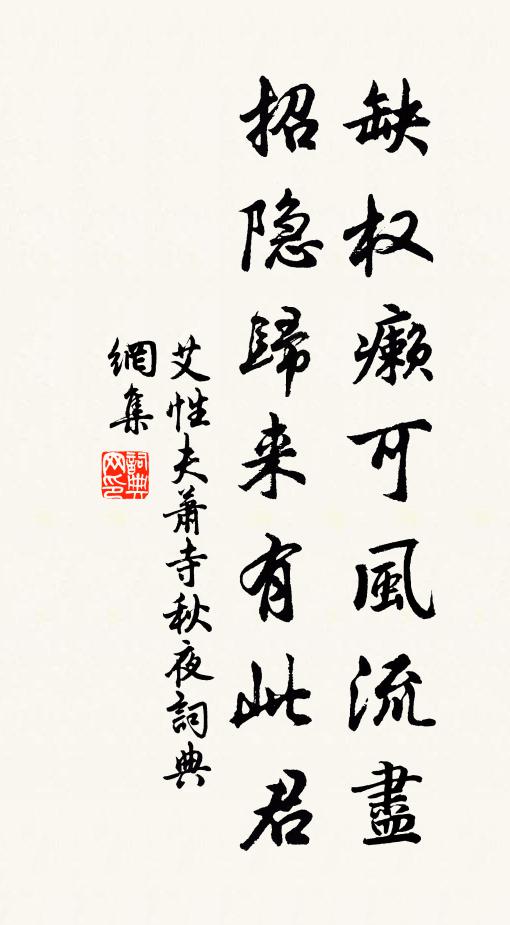 缺权癞可風流盡
招隐歸来有此君
艾性夫蕭寺秋夜詞典
網集
詞典
网印